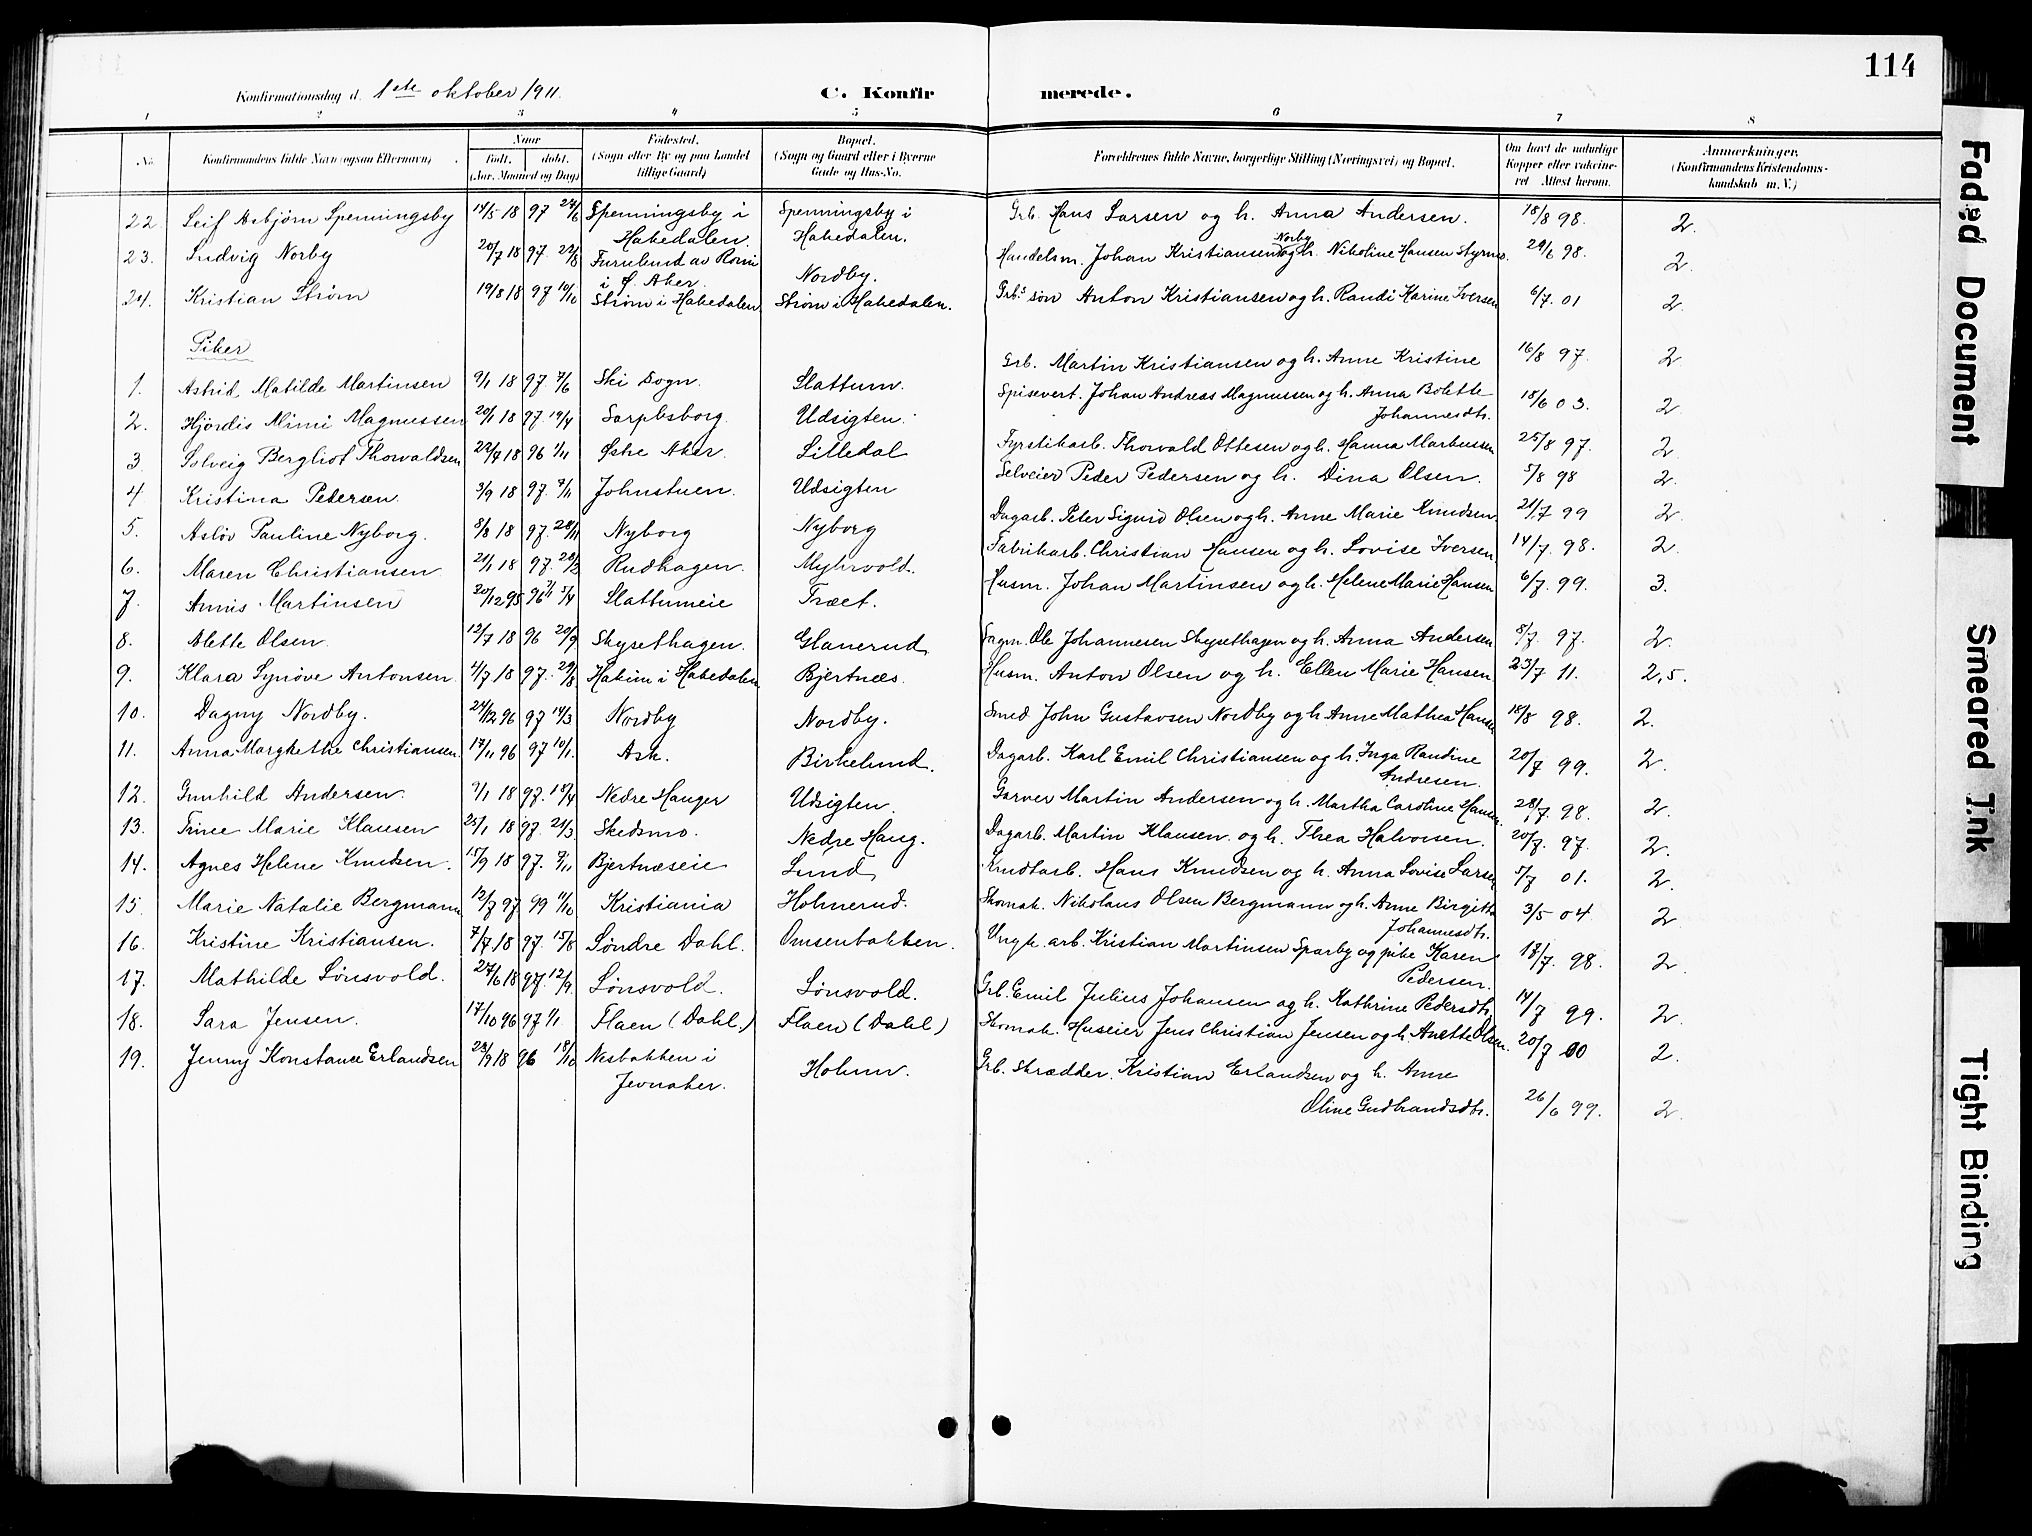 114
Konfirmationsdag d. 1ste oktober 1911.
C. Konfirmerede.
1 2 3 4 5 6 7 8
No. Konfirmandens fulde Navn (ogsaa Efternavn). Naar født. døbt. (Aar, Maaned og Dag) Fødested. (Sogn eller By og paa Landet tillige Gaard) Bopæl. (Sogn og Gaard eller i Byerne Gade og Hus-No. Forældrenes fulde Navne, borgerlige Stilling (Næringsvei) og Bopæl. Om havt de naturlige Kopper eller vakcineret Attest herom. Anmærkninger. (Konfirmandens Kristendomskundskab m. V.)
22 Leif Asbjørn Spenningsby 14/5 18 97 24/6 Spenningsby i Hakedalen. Spenningsby i Hakedalen. Grb. Hans Larsen og h. Anna Andersen. 18/8 98. 2.
23. Ludvig Norby 20/7 18 97. 22/8 Furulund av Rom i Ø. Aker Nordby. Handelsm. Johan Kristiansen Norby og h. Nikoline Hansen 29/6 98. 2.
24. Kristian Strøm 19/8 18 97 10/10 Strøm i Hakedalen. Strøm i Hakedalen. Grb.s søn Anton Kristiansen og h. Randi Karine Iversen 6/7. 01 2.
Piker
1. Astrid Matilde Martinsen 9/1 18 97. 7/6 Ski sogn. Slattum. Grb. Martin Kristiansen og h. Anne Kristine 16/8 97. 2
2. Hjördis Mimi Magnussen 20/1 18 97. 19/4 Sarpsborg. Udsigten. Spisevert. Johan Andreas Magnussen og h. Anna Bolette Johannesdtr. 18/6 03. 2
3 Solveig Bergliot Thorvaldsen 22/7 18 96 1/11 Østre Aker. Lilledal Fyrstikarb. Thorvald Ottesen og h. Hanna Markussen 25/8 97. 2.
4 Kristina Pedersen. 3/9 18 97. 7/11 Johnstuen. Udsigten Selveier Peder Pedersen og h. Dina Olsen. 5/8 98 2.
5. Asløv Pauline Nyborg. 8/8 18 97. 28/11 Nyborg Nyborg Dagarb. Peter Sigurd Olsen og h. Anne Marie Knudsen. 21/7 99 2.
6. Maren Christiansen 21/1 18 97. 28/3 Rudhagen. Myhrvold. Fabrikarb. Christian Hansen og h. Lovise Iversen 14/7. 98. 2.
7. Annis Martinsen 20/12 95 96 5/4 Slattumeie Træet. Husm. Johan Martinsen og h. Helene Marie Hansen 6/7. 99. 3.
8. Alette Olsen. 12/7 18 96 20/9 Skysethagen. Glanerud Sagm. Ole Johannesen Skysethagen og h. Anna Andersen 8/7. 97. 2.
9. Klara Synøve Antonsen. 4/7 18 97. 29/8 Hakim i Hakedalen. Bjertnæs. Husm. Anton Olsen og h. Ellen Marie Hansen 23/7 11. 2,5.
10. Dagny Nordby. 24/12 96 97 14/3 Nordby Nordby. Smed John Gustavsen Nordby og h. Anne Mathea Hansen 18/8 98. 2.
11. Anna Marghethe Christiansen. 17/11 96 97 10/1. Ask. Birkelund. Dagarb. Karl Emil Christiansen og h. Inga Randine Andresen. 20/7 99. 2.
12. Gunhild Andersen. 9/1 18 97. 18/4 Nedre Hauger Udsigten. Garver Martin Andersen og h. Martha Caroline Hansen. 28/7. 98. 2.
13. Trine Marie Klausen 25/1 18 97. 21/3 Skedsmo. Nedre Haug. Dagarb. Martin Klausen. og h. Thea Halvorsen. 20/7. 97. 2.
14. Agnes Helene Knudsen. 15/9 18 97. 7/11 Bjertnæseie Lund Hans Knudsen og h. Anna Lovise Larsen 5/7 01. 2.
15. Marie Natalie Bergmann 12/7 97 99 4/10 Kristiania Holmerud. Skomak. Nikolaus Olsen Bergmann og h. Anne Birgitta Johannesdtr. 3/5 04 2
16. Kristine Kristiansen. 7/7 18 97. 15/8 Søndre Dahl. Omsenbakken. Ungk. arb. Kristian Martinsen Sparby og pike Karen Pedersen. 18/7. 98. 2
17. Mathilde Lønsvold. 27/6 18 97 12/9 Lönsvold. Lønsvold. Grb. Emil Julius Johansen og h. Kathrine Pedersdtr. 14/7 99. 2.
18. Sara Jensen. 17/10 96 97 1/1 Flaen (Dahl.) Flaen (Dahl) Skomak. Huseier Jens Christian Jensen og h. Anette Olsen. 20/7 00 2.
19. Jenny Konstance Erlandsen 23/9 18 96 18/10 Nesbakken i Jevnaker. Holum. Grb. Skrædder. Kristian Erlandsen og h. Anne Oline Gudbrandsdtr. 26/6 99. 2.
Faded Document
Smeared Ink
Tight Binding